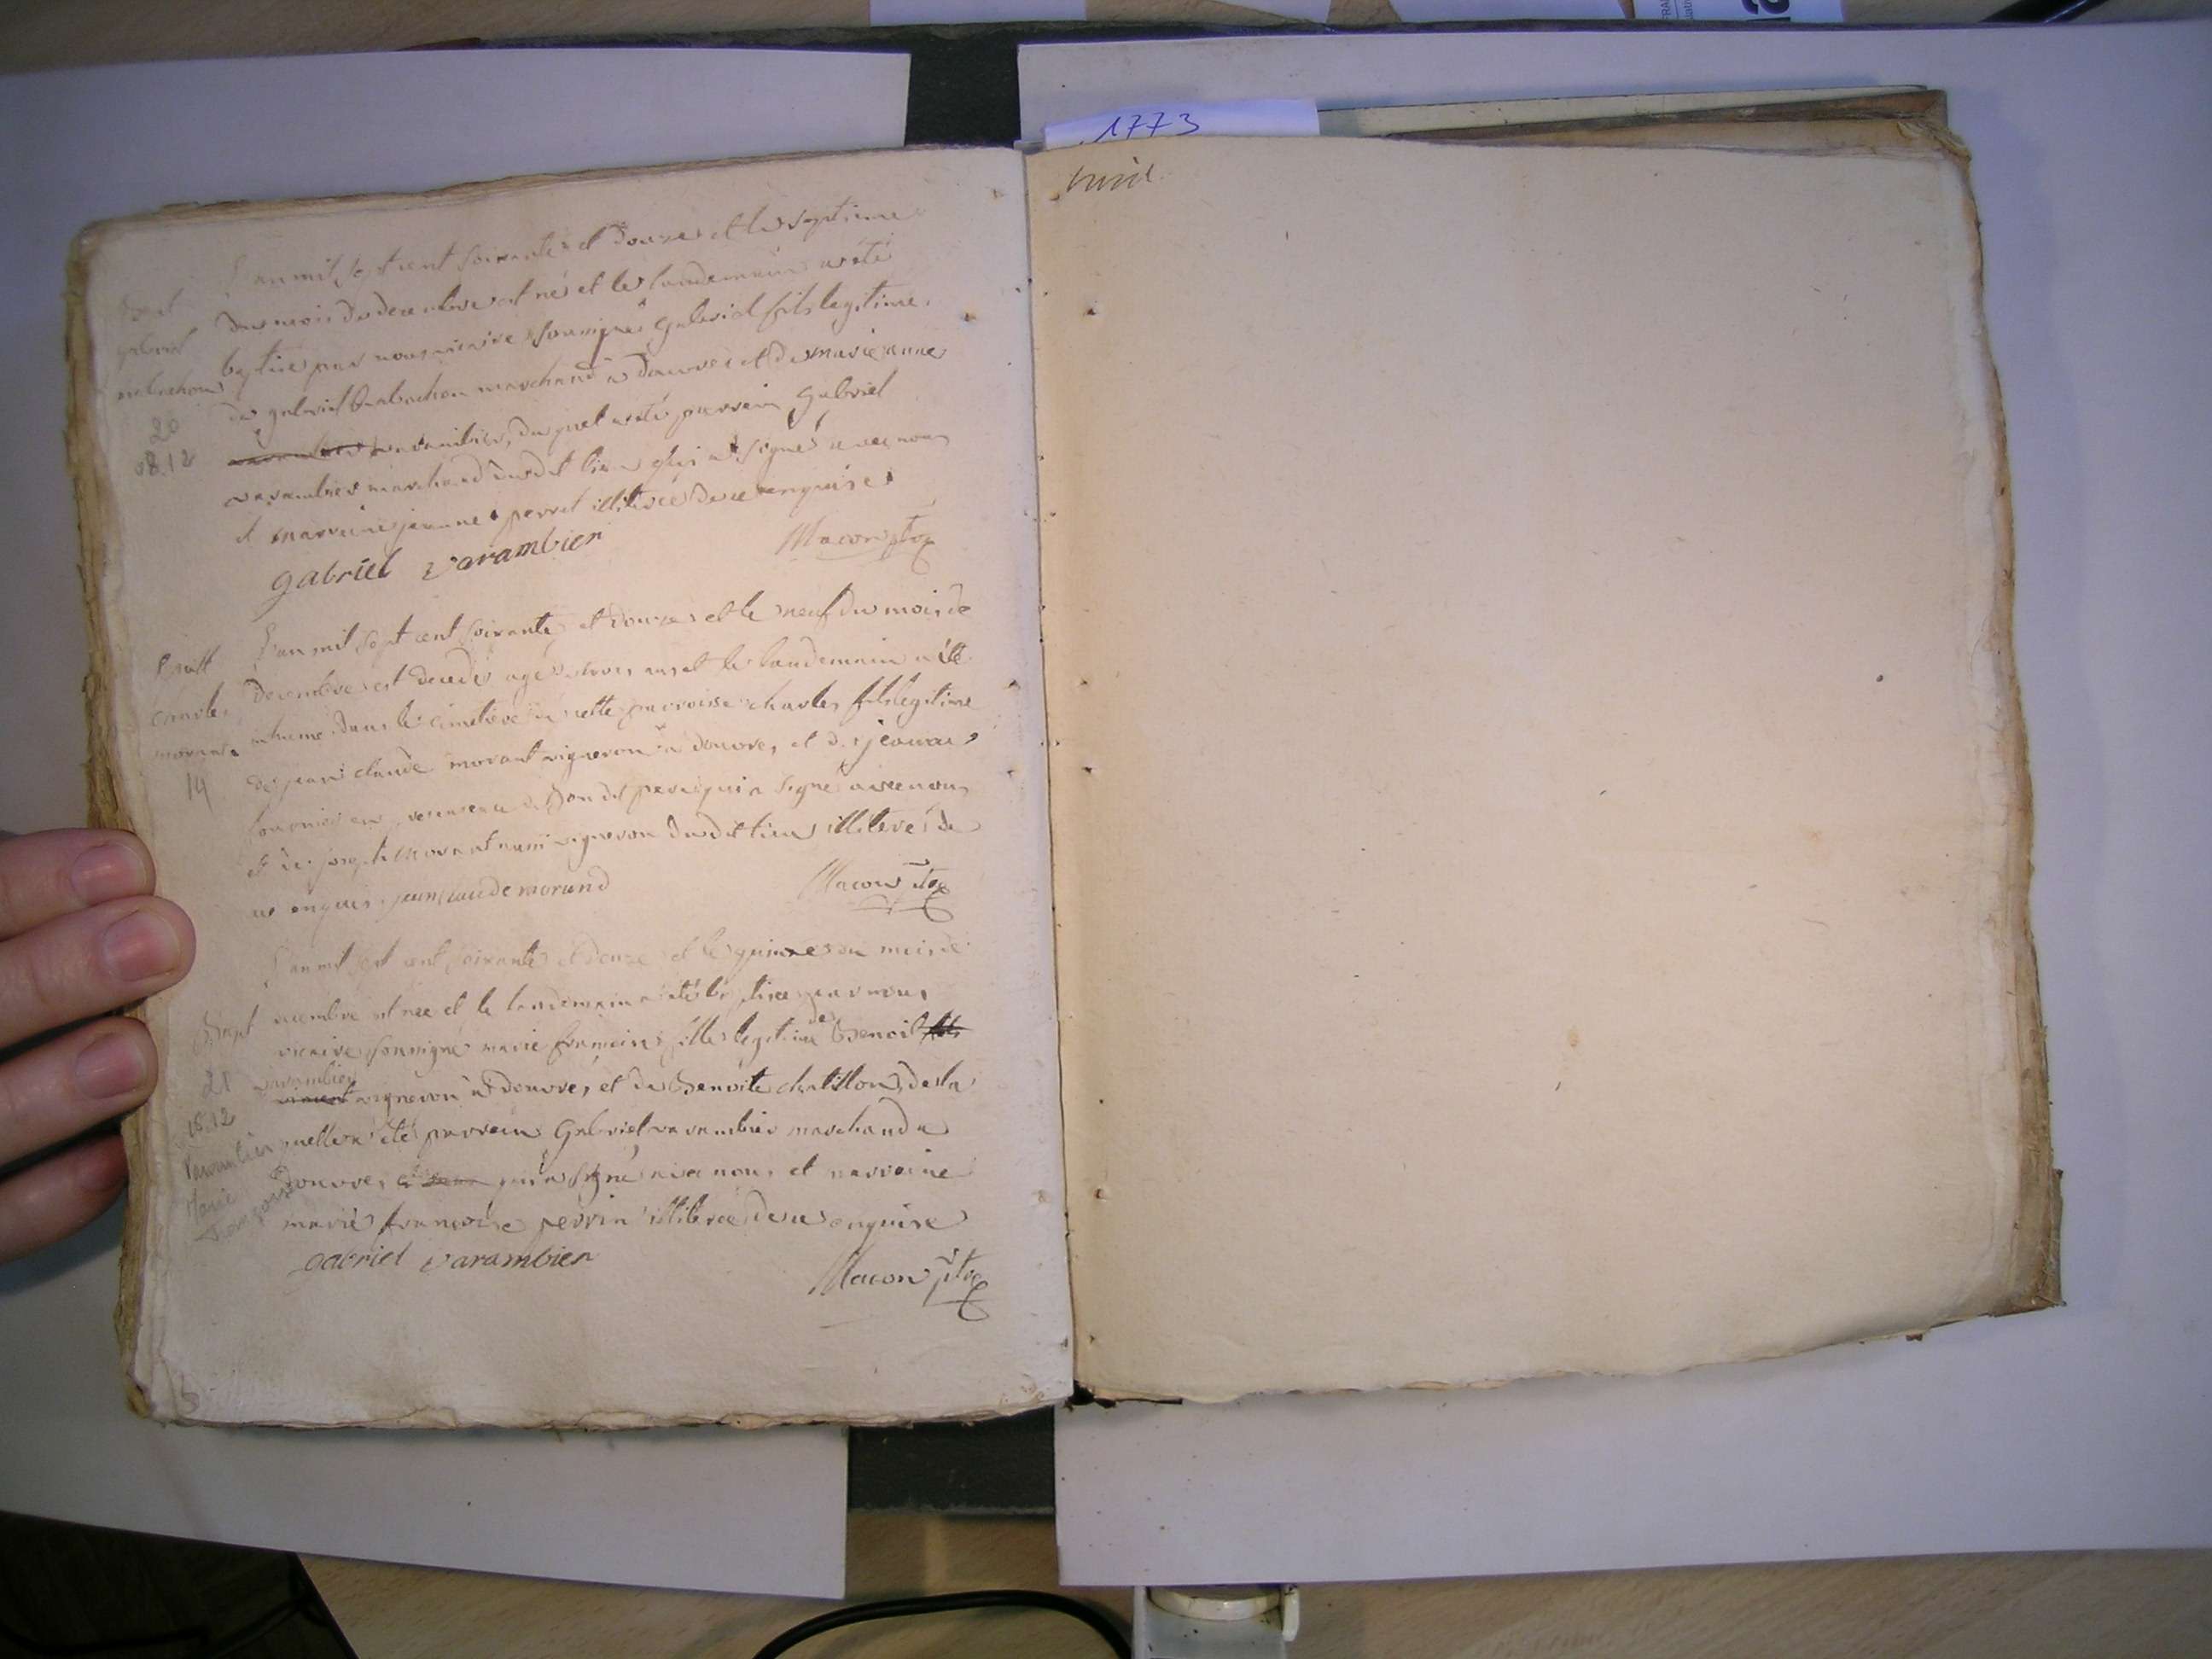 1773
L'an mil sept cent soixante et douze et le septieme
du mois de decembre est né et le landemain a été
batisé par nous vicaire soussigné gabriel fils legitime
de gabriel marchand a douvre et de marie anne
varambier, du quel a été parrein gabriel
varambier marchand dudit lieu qui a signé avec nous
et marreine jeanne perret illiterée de ce enquise
gabriel varambier
Macon ptre
Bapt
gabriel
20
8.12
L'an mil sept cent soixante et douze et le neuf du mois de
decembre est decedé agé de trois ans et le landemain a été
inhumé dans le cimetiere de cette parroisse charles fils legitime
de jean claude morant vigneron a douvre, et de jeanne
en presence de son dit pere qui a signé avec nous
et de joseph morant aussi vigneron dudit lieu illiteré de
ce enquis. jean claude morand
Macon ptre
charles
morant
14
L'an mil sept cent soixante et douze et le quinze du mois de
decembre est née et le landemain a été batisée par nous
vicaire soussigné marie francoise fille legitime de Benoit
varambier vigneron a douvre, et de Benoite chatillon, de la
quelle a été parrein Gabriel varambier marchand a
douvre, qui a signé avec nous et marreine
marie francoise perrin illiterée de ce enquise
gabriel varambier
Macon ptre
Bapt
21
15.12
Varambier
Marie
Françoise